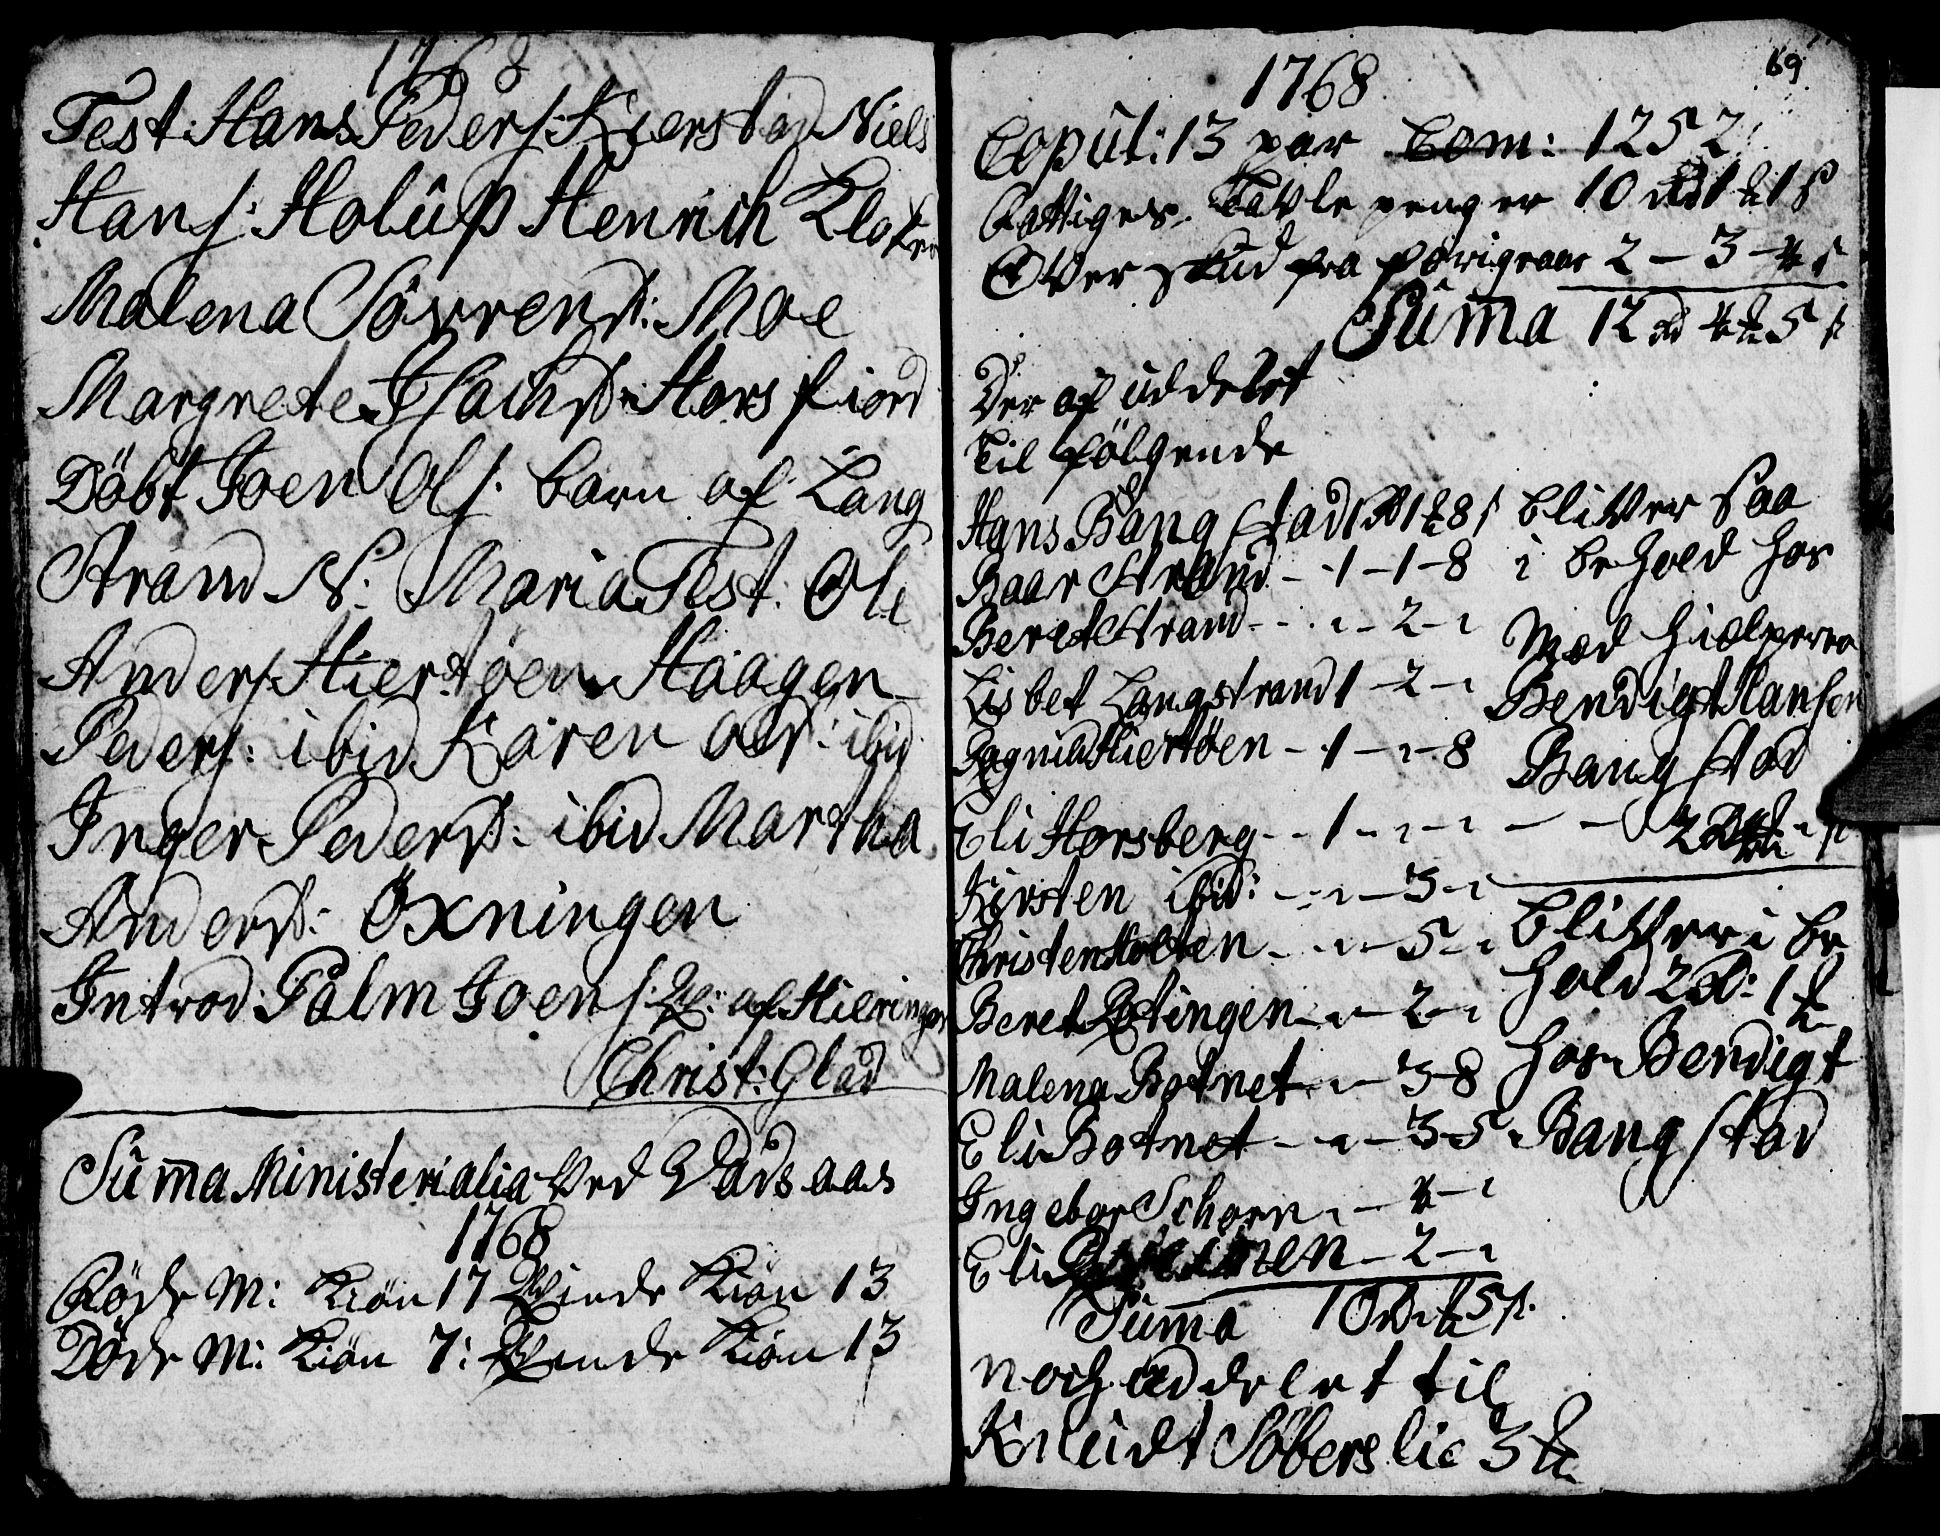 1768
Test: Hans Peders: Kierstad Niels
Hans: Holup Henrich Kloker
Malena Sörrensd: Moe
Margrete Isachsd: Horsfiord
Döbt Joen Ols: barn af Lang
Strand N: Maria Test: Ole
Anders: Hiertöen Haagen
Peders: ibid Karen Olsd: ibid
Inger Pedersd: ibid Martha
Andersd: Öxningen
Introd: Palm Joens: Q: af Hieringen
Christ: Glad
Suma Ministerialia ved Vadsaas
1768
Föde M: Kiön 17 Qvinde Kiön 13
Döde M: Kiön 7: Qvinde Kiön 13
69
1768
Copul: 13 par Com: 1252
Fattiges Tavle penger 10 rd 1 ß
Over skud fra forigeaar 2 - 3 - 4 s
Suma 12 rd 4 5 s
Der af uddelt
til fölgende
Hans Bangstad 1 rd 1 8 s
Baar Strand - 1 - 1 - 8
Beret Strand - - - 2 -
Lisbet Langstrand 1 - 2 -
Ragnild Hiertöen - 1 - - 8
Eli Horsberg - - 1 - - -
Kirsten ibid: - - - 3 -
Christen Holten - - - 5 -
Beret Rötingen - - 2 -
Malena Botnet - - 3 - 8
Eli Botnet - - - 3 - 5
Ingebor Schorn - - 4 -
Eli - 2 -
Suma 10 rd 5 s.
noch uddelet til
Knudt Söberslie 3
bliver saa
i behold hos
Med hielperen
Bendigt Hansen
Bangstad
- - 2 rd
bliver i be
hold 2 rd: 1
hos Bendigt
Bangstad